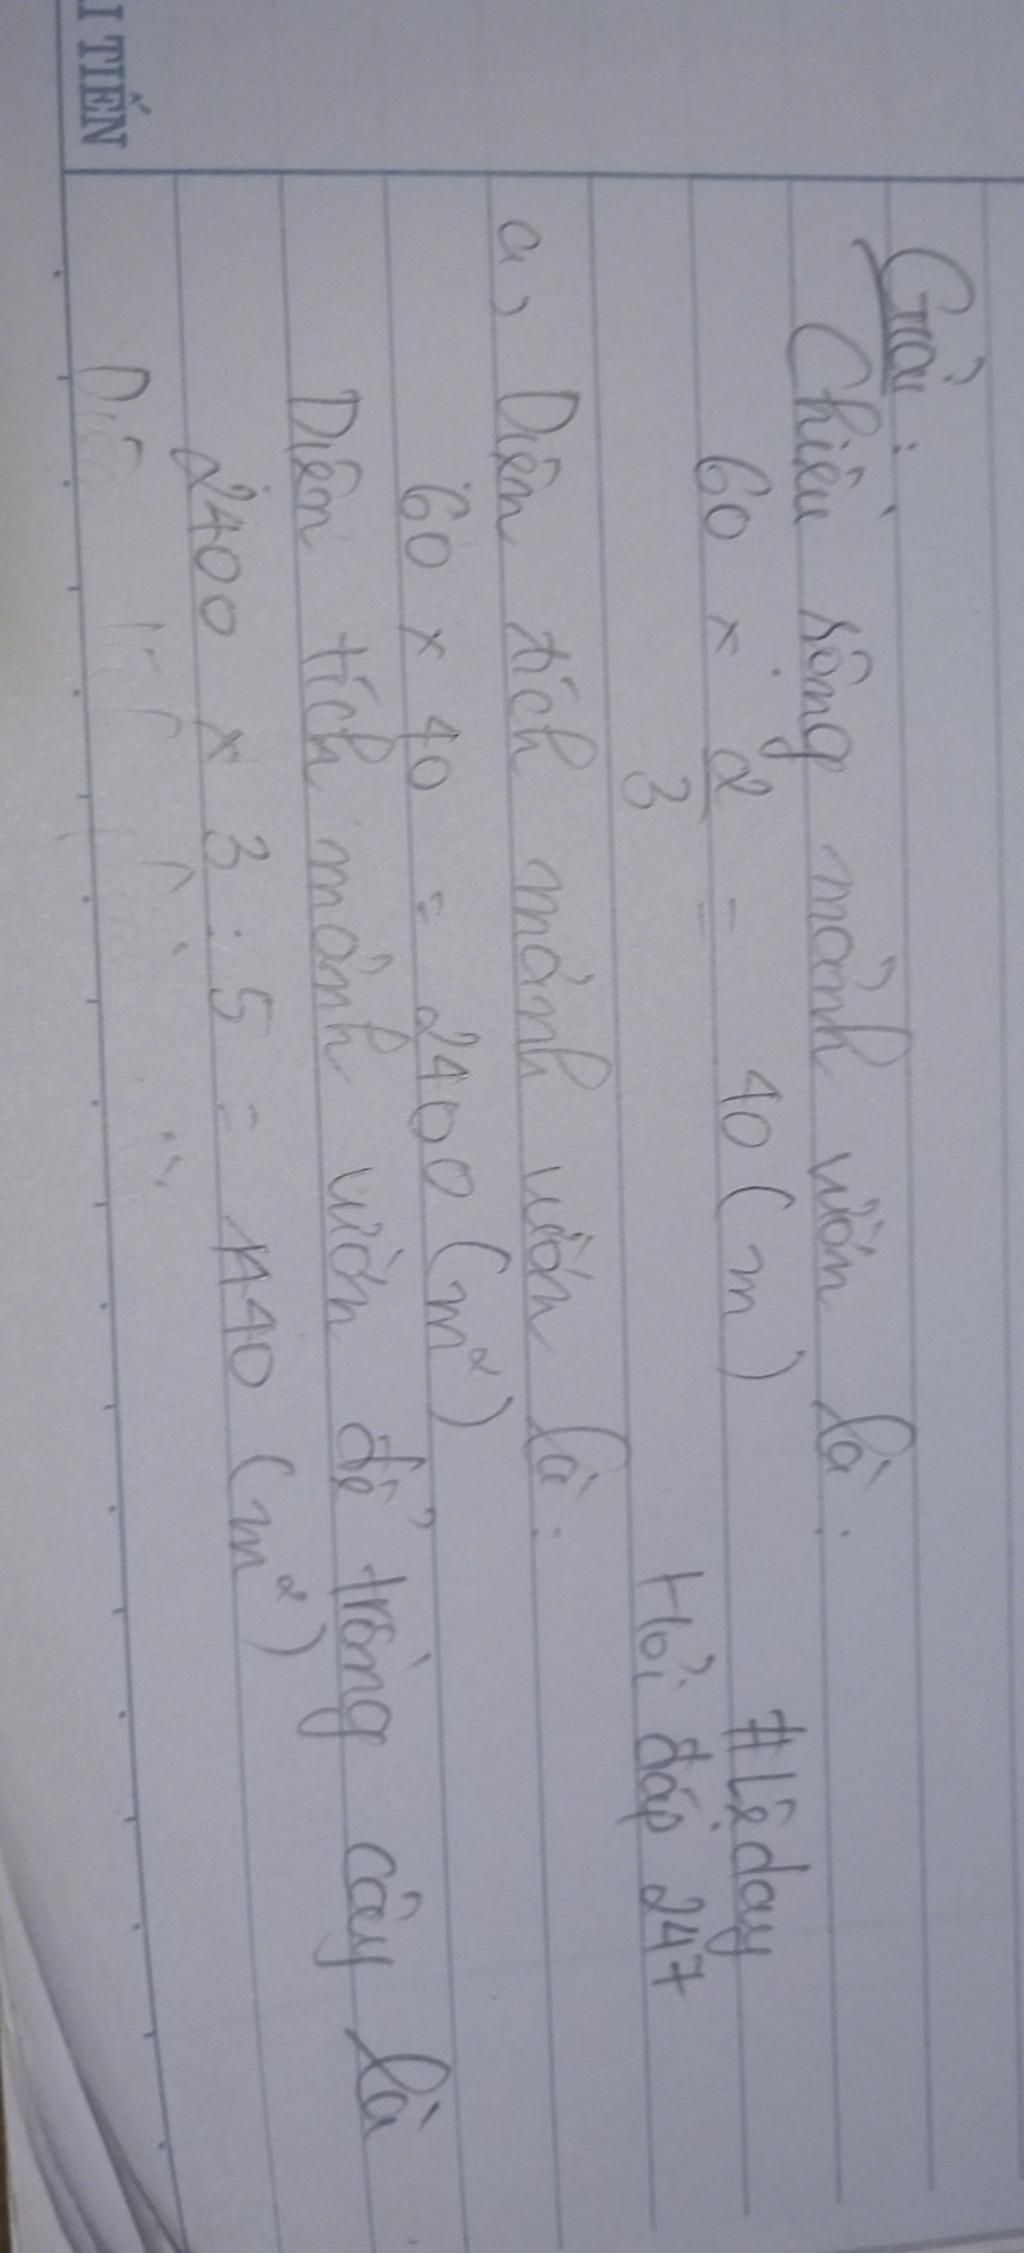 I TIẾN
Giải:
Chiều rộng mảnh vườn là:
60 × 2/3 = 40 (m)
#Lêday
Hỏi đáp 247
a, Diện tích mảnh vườn là:
60 × 40 = 2400 (m²)
Diện tích mảnh vườn để trồng cây là
2400 × 3 : 5 = 1440 (m²)